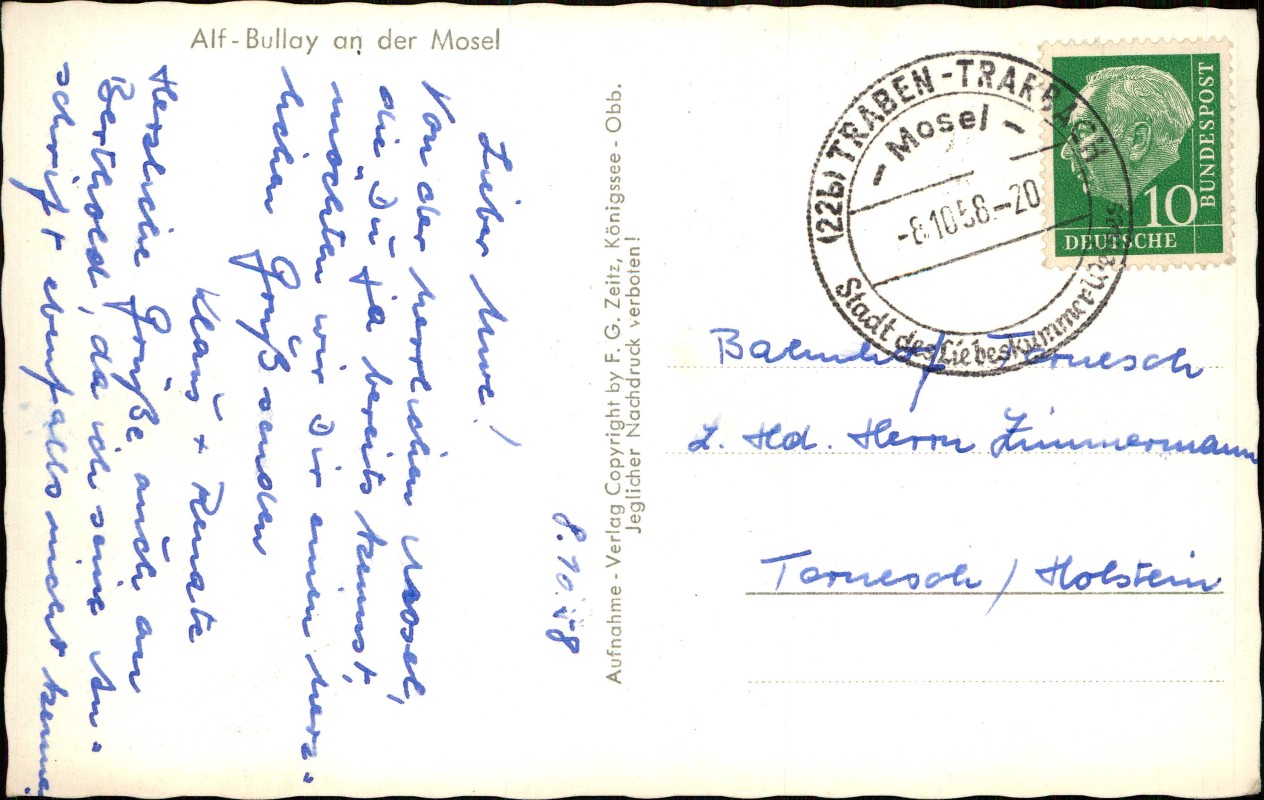 Alf-Bullay an der Mosel
8.10.58
Lieber Uwe!
Von der herrlichen Mosel,
die Du ja bereits kennst,
möchten wir Dir einen herz=
lichen Gruß senden
Klaus + Renate
Herzliche Grüße auch an
Berthold, da ich seine An=
schrift ebenfalls nicht kenne.
Aufnahme - Verlag Copyright by F. G. Zeitz, Königssee - Obb.
Jeglicher Nachdruck verboten!
(22b) TRABEN-TRARBACH
- Mosel -
-8.10.58.-20
Stadt des Liebeskummer-Weines
BUNDESPOST
10
DEUTSCHE
Bahnhof Tornesch
z. Hd. Herrn Zimmermann
Tornesch / Holstein